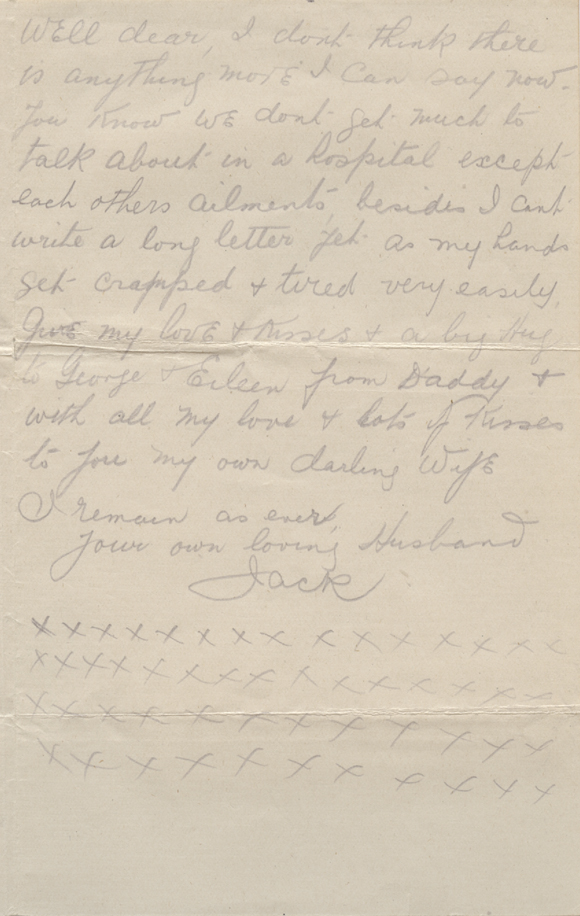 Well dear, I dont think there
is anything more I can say now.
You know we dont get much to
talk about in a hospital except
each others ailments, besides I cant
write a long letter yet as my hands
get crapped & tired very easily.
Give my love & Kisses & a big Hug
to George & Eileen from Daddy &
with all my love & lots of Kisses
to you my own darling Wife
I remain as ever,
your own loving Husband
Jack
x x x x x x x x x x x x x x x x x
x x x x x x x x x x x x x x x x x
x x x x x x x x x x x
x x x x x x x x x x x